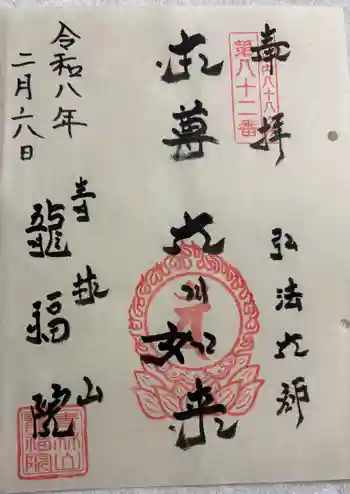 奉拝　弘法大師
内八十八
第八十二番
本尊　大日如来
青林山
龍福院
令和八年
二月六日
青林山
龍福院